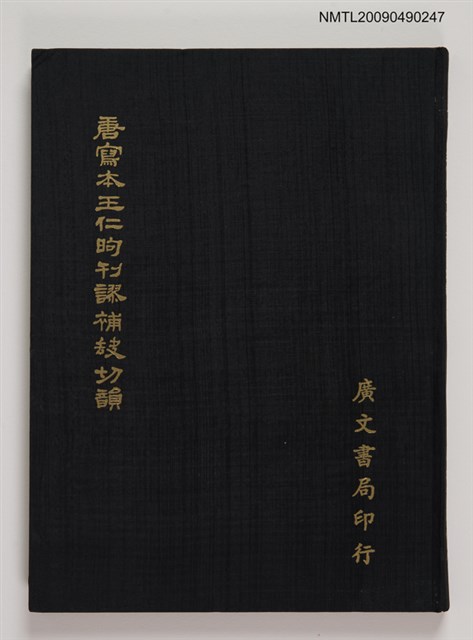 NMTL20090490247
唐寫本王仁昫刊謬補缺切韻
廣文書局印行